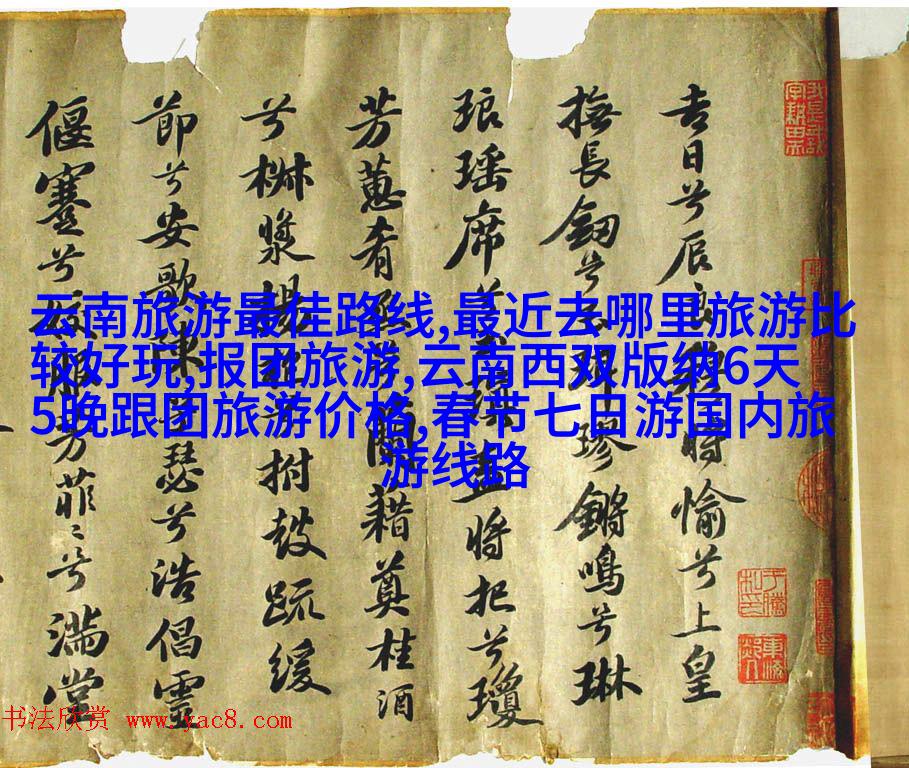 吉日兮辰良穆將愉兮上皇
撫長劒兮玉珥璆鏘鳴兮琳
琅瑶席兮玉瑱盍將把兮瓊
芳蕙肴蒸兮蘭藉奠桂酒
兮椒漿揚枹兮拊鼓疏緩
節兮安歌陳竽瑟兮浩倡靈
偃蹇兮姣服芳菲〻兮滿堂
云南旅游最佳路线,最近去哪里旅游比
较好玩,报团旅游,云南西双版纳6天
5晚跟团旅游价格,春节七日游国内旅
游线路
书法欣赏 www.yac8.com